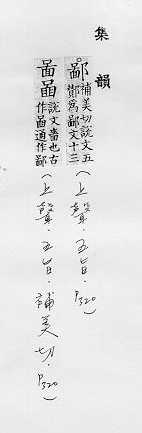 集韻
鄙 補美切說文五
酇爲鄙文十三
(上聲.五旨.P320)
啚𠷎 說文嗇也古
作啚通作鄙
(上聲.五旨.補美切.P320)